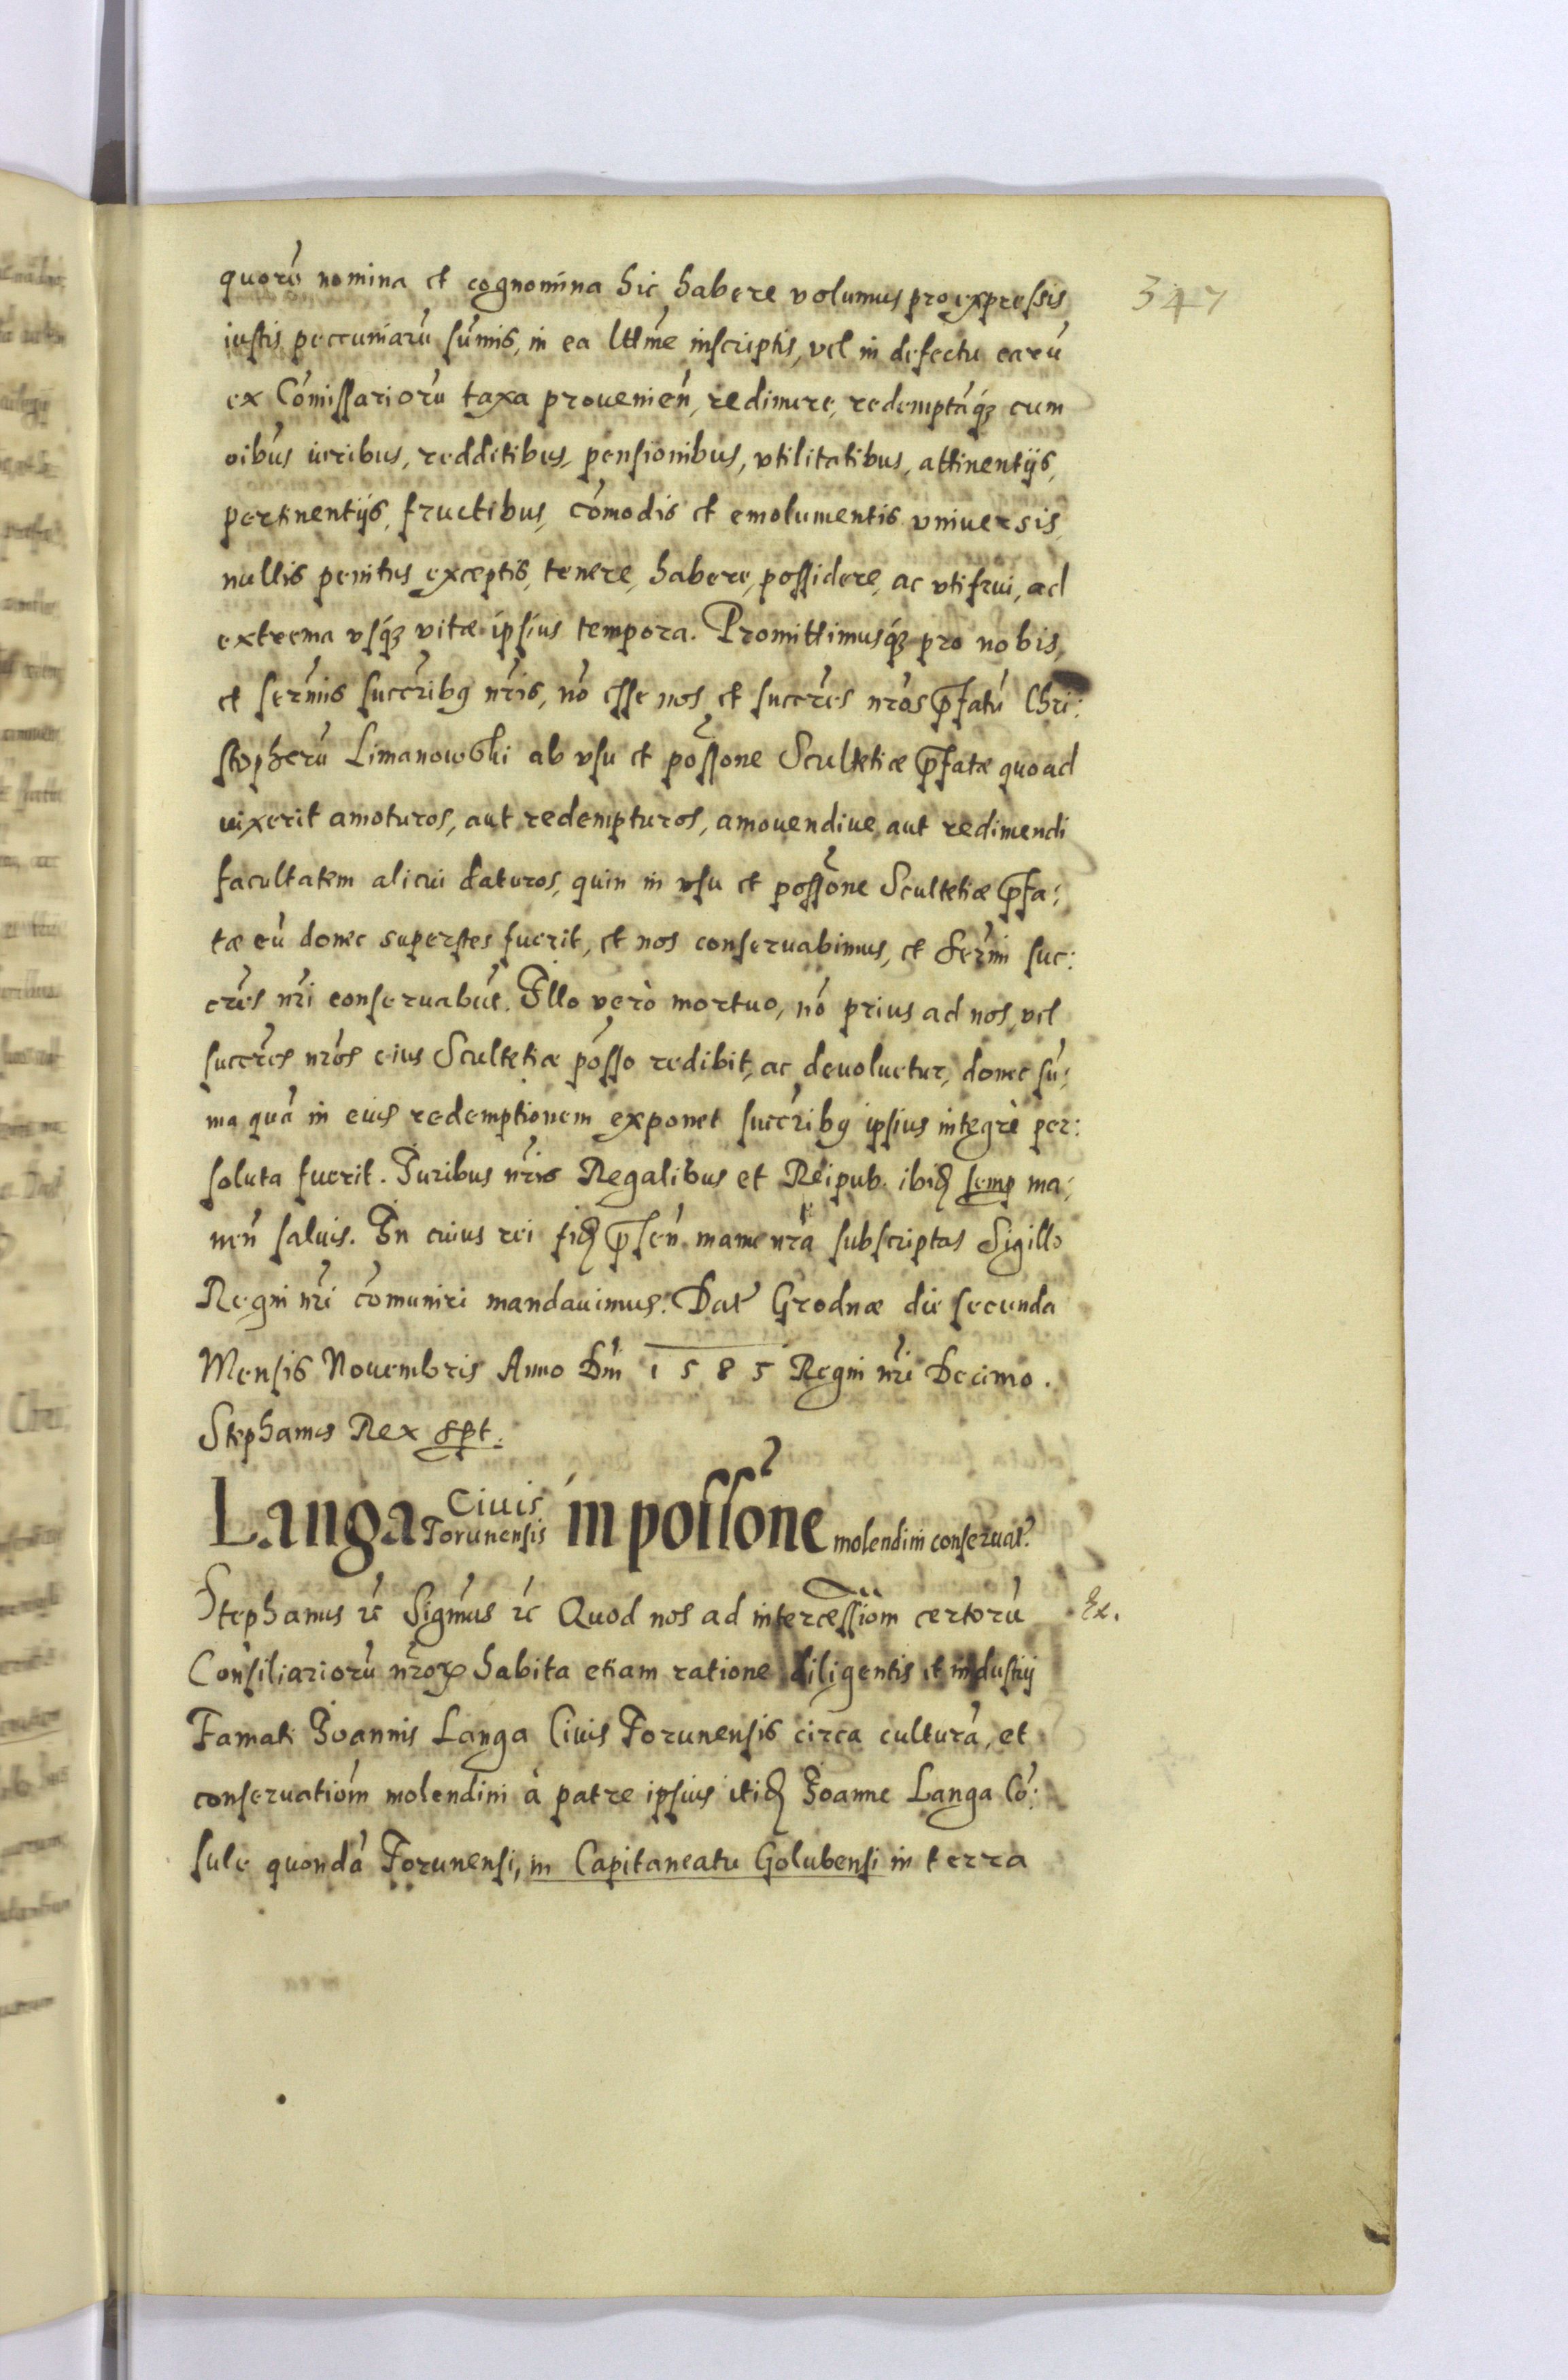 347
quorú nomina et cognomina hic habere volumus pro expressis
iustis peccuniarú súmis, in ea lttme inscriptis, vel in defectu earú
ex Cómissariorú taxa provenień, redimere, redemptáq́ʒ cum
oibús iuribus, redditibus, pensionibus, vtilitatibus, attinentijs,
pertinentijs, fructibus, cómodis et emolumentis vniversis,
nullis penitus exceptis, tenere, habere, possidere, ac vtifrui, ad
extrema vsq́ʒ vitæ ipsius tempora. Promittimusq́ʒ pro nobis,
et serm̃is succr̃ibꝯ nr̃is, nó esse nos et succr̃es nr̃os p̃fatú Chri:
stopherú Limanowski ab vsu et possõne Scultetiæ p̃fatæ quoad
vixerit amoturos, aut redempturos, amovendive aut redimendi
facultatem alicui daturos, quin in vsu et possõne Scultetiæ p̃fa:
tæ eú donec superstes fuerit, et nos conservabimus, et Serm̃i suc:
cr̃es nr̃i conservabũt. Illo verò mortuo, nó prius ad nos, vel
succr̃es nr̃os eius Scultetiæ pósso redibit, ac devolvetur, donec sú:
ma quá in eius redemptionem exponet succr̃ibꝯ ipsius integrè per:
soluta fuerit. Iuribus nr̃is Regalibus et Reipub. ibiꝺ semp ma:
neń salvis. In cuius rei fiꝺ p̃seń. manu nr̃a subscriptas Sigillo
Regni nr̃i cómuniri mandavimus. Dat̃ Grodnæ die secunda
Mensis Novembris Anno Dñi 1585 Regni nr̃i Decimo.
Stephanus Rex sp̃t.
Langa Civis Torunensis in possõne molendini conservat̃.
Stephanus ꝛc Sigm̃us ꝛc Quod nos ad intercessiõm certorú
Ex.
Consiliariorú nr̃oꝝ habita etiam ratione diligentis et industrij
Famati Ioannis Langa Civis Torunensis circa culturá, et
conservatióm molendini à patre ipsius itiꝺ Ioanne Langa Có:
sule quondá Torunensi, in Capitaneatu Golubensi in terra